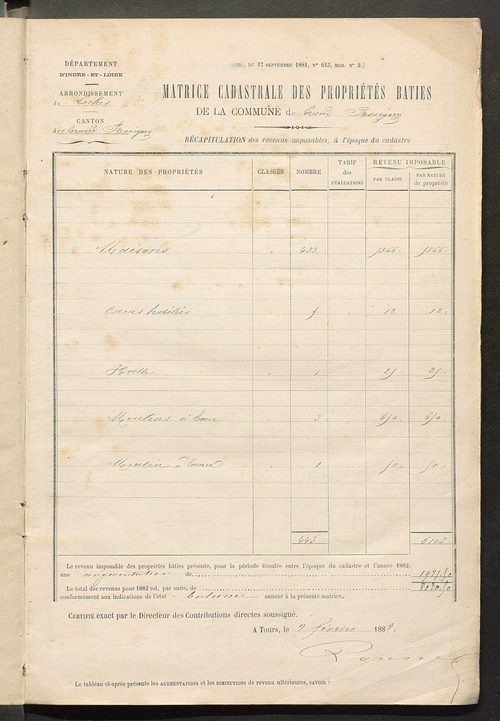 DÉPARTEMENT
D'INDRE-ET-LOIRE
ARRONDISSEMENT
de Loches
CANTON
du Grand Pressigny
(CIRC. DU 17 SEPTEMBRE 1881, N° 615, MOD. N° 2.)
MATRICE CADASTRALE DES PROPRIÉTÉS BATIES
DE LA COMMUNE du Grand Pressigny
RÉCAPITULATION des revenus imposables, à l'époque du cadastre
NATURE DES PROPRIÉTÉS CLASSES NOMBRE TARIF des ÉVALUATIONS REVENU IMPOSABLE
PAR CLASSE PAR NATURE de propriété
Maisons
caves habitées 12 12
Halle 1 25 25
Moulins à Eau 3 650 650
Moulin à 1 50 50
643 6103
Le revenu imposable des propriétés bâties présente, pour la période écoulée entre l'époque du cadastre et l'année 1882,
une augmentation de 1927,50
Le total des revenus pour 1882 est, par suite, de 8030,50
conformément aux indications de l'état annexé à la présente matrice.
CERTIFIÉ exact par le Directeur des Contributions directes soussigné.
A TOURS, le 9 février 1882.
Le tableau ci-après présente les AUGMENTATIONS et les DIMINUTIONS de revenu ultérieures, SAVOIR :